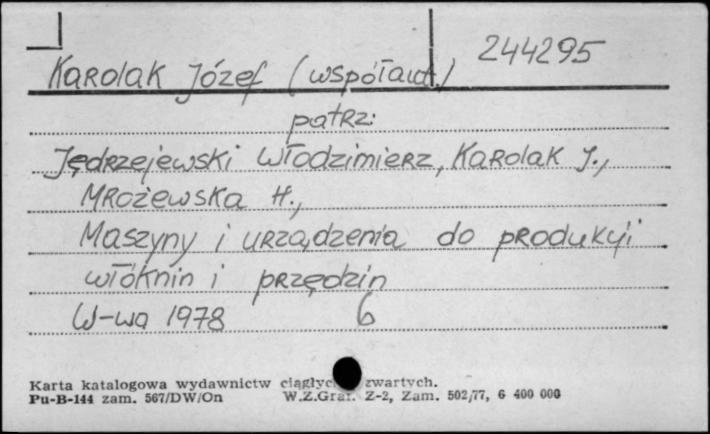 244295
Karolak Józef (współaut.)
patrz:
Jędrzejewski Włodzimierz, Karolak J.,
Mrożewska H.,
Maszyny i urządzenia do produkcji
włóknin i przędzin
W-wa 1978 6
Karta katalogowa wydawnictw zwartych.
Pu-B-144 zam. 567/DW/On W.Z.Graf. Z-2, Zam. 502/77, 6 400 000